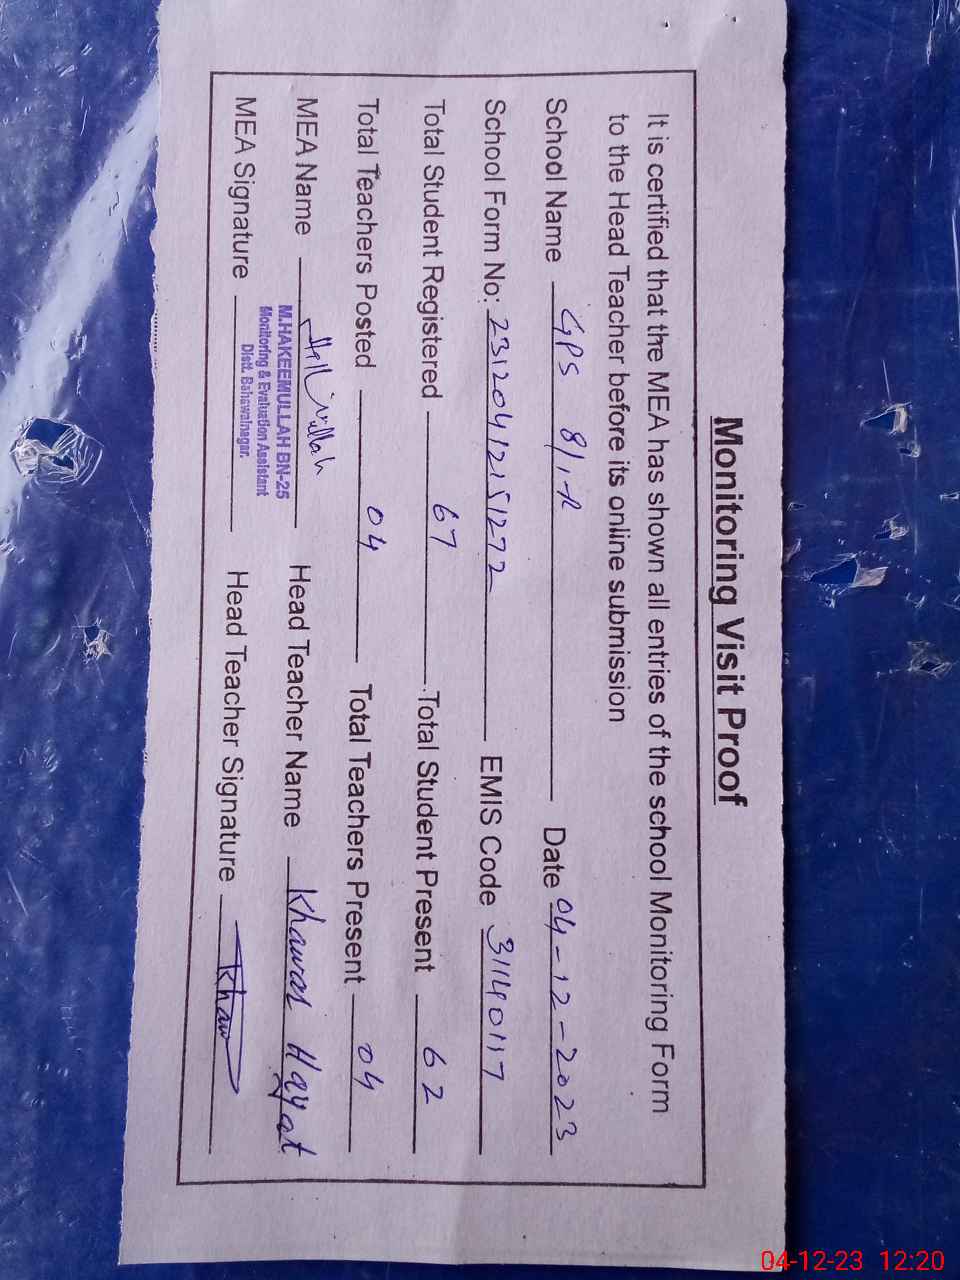 Monitoring Visit Proof
It is certified that the MEA has shown all entries of the school Monitoring Form
to the Head Teacher before its online submission
School Name GPS 8/1-R Date 04-12-2023
School Form No: 23120412151272 EMIS Code 31140117
Total Student Registered 67 Total Student Present 62
Total Teachers Posted 04 Total Teachers Present 04
MEA Name Head Teacher Name Khawar Hayat
M.HAKEEMULLAH BN-25
Monitoring & Evaluation Assistant
Distt. Bahawalnagar.
MEA Signature Head Teacher Signature
04-12-23 12:20